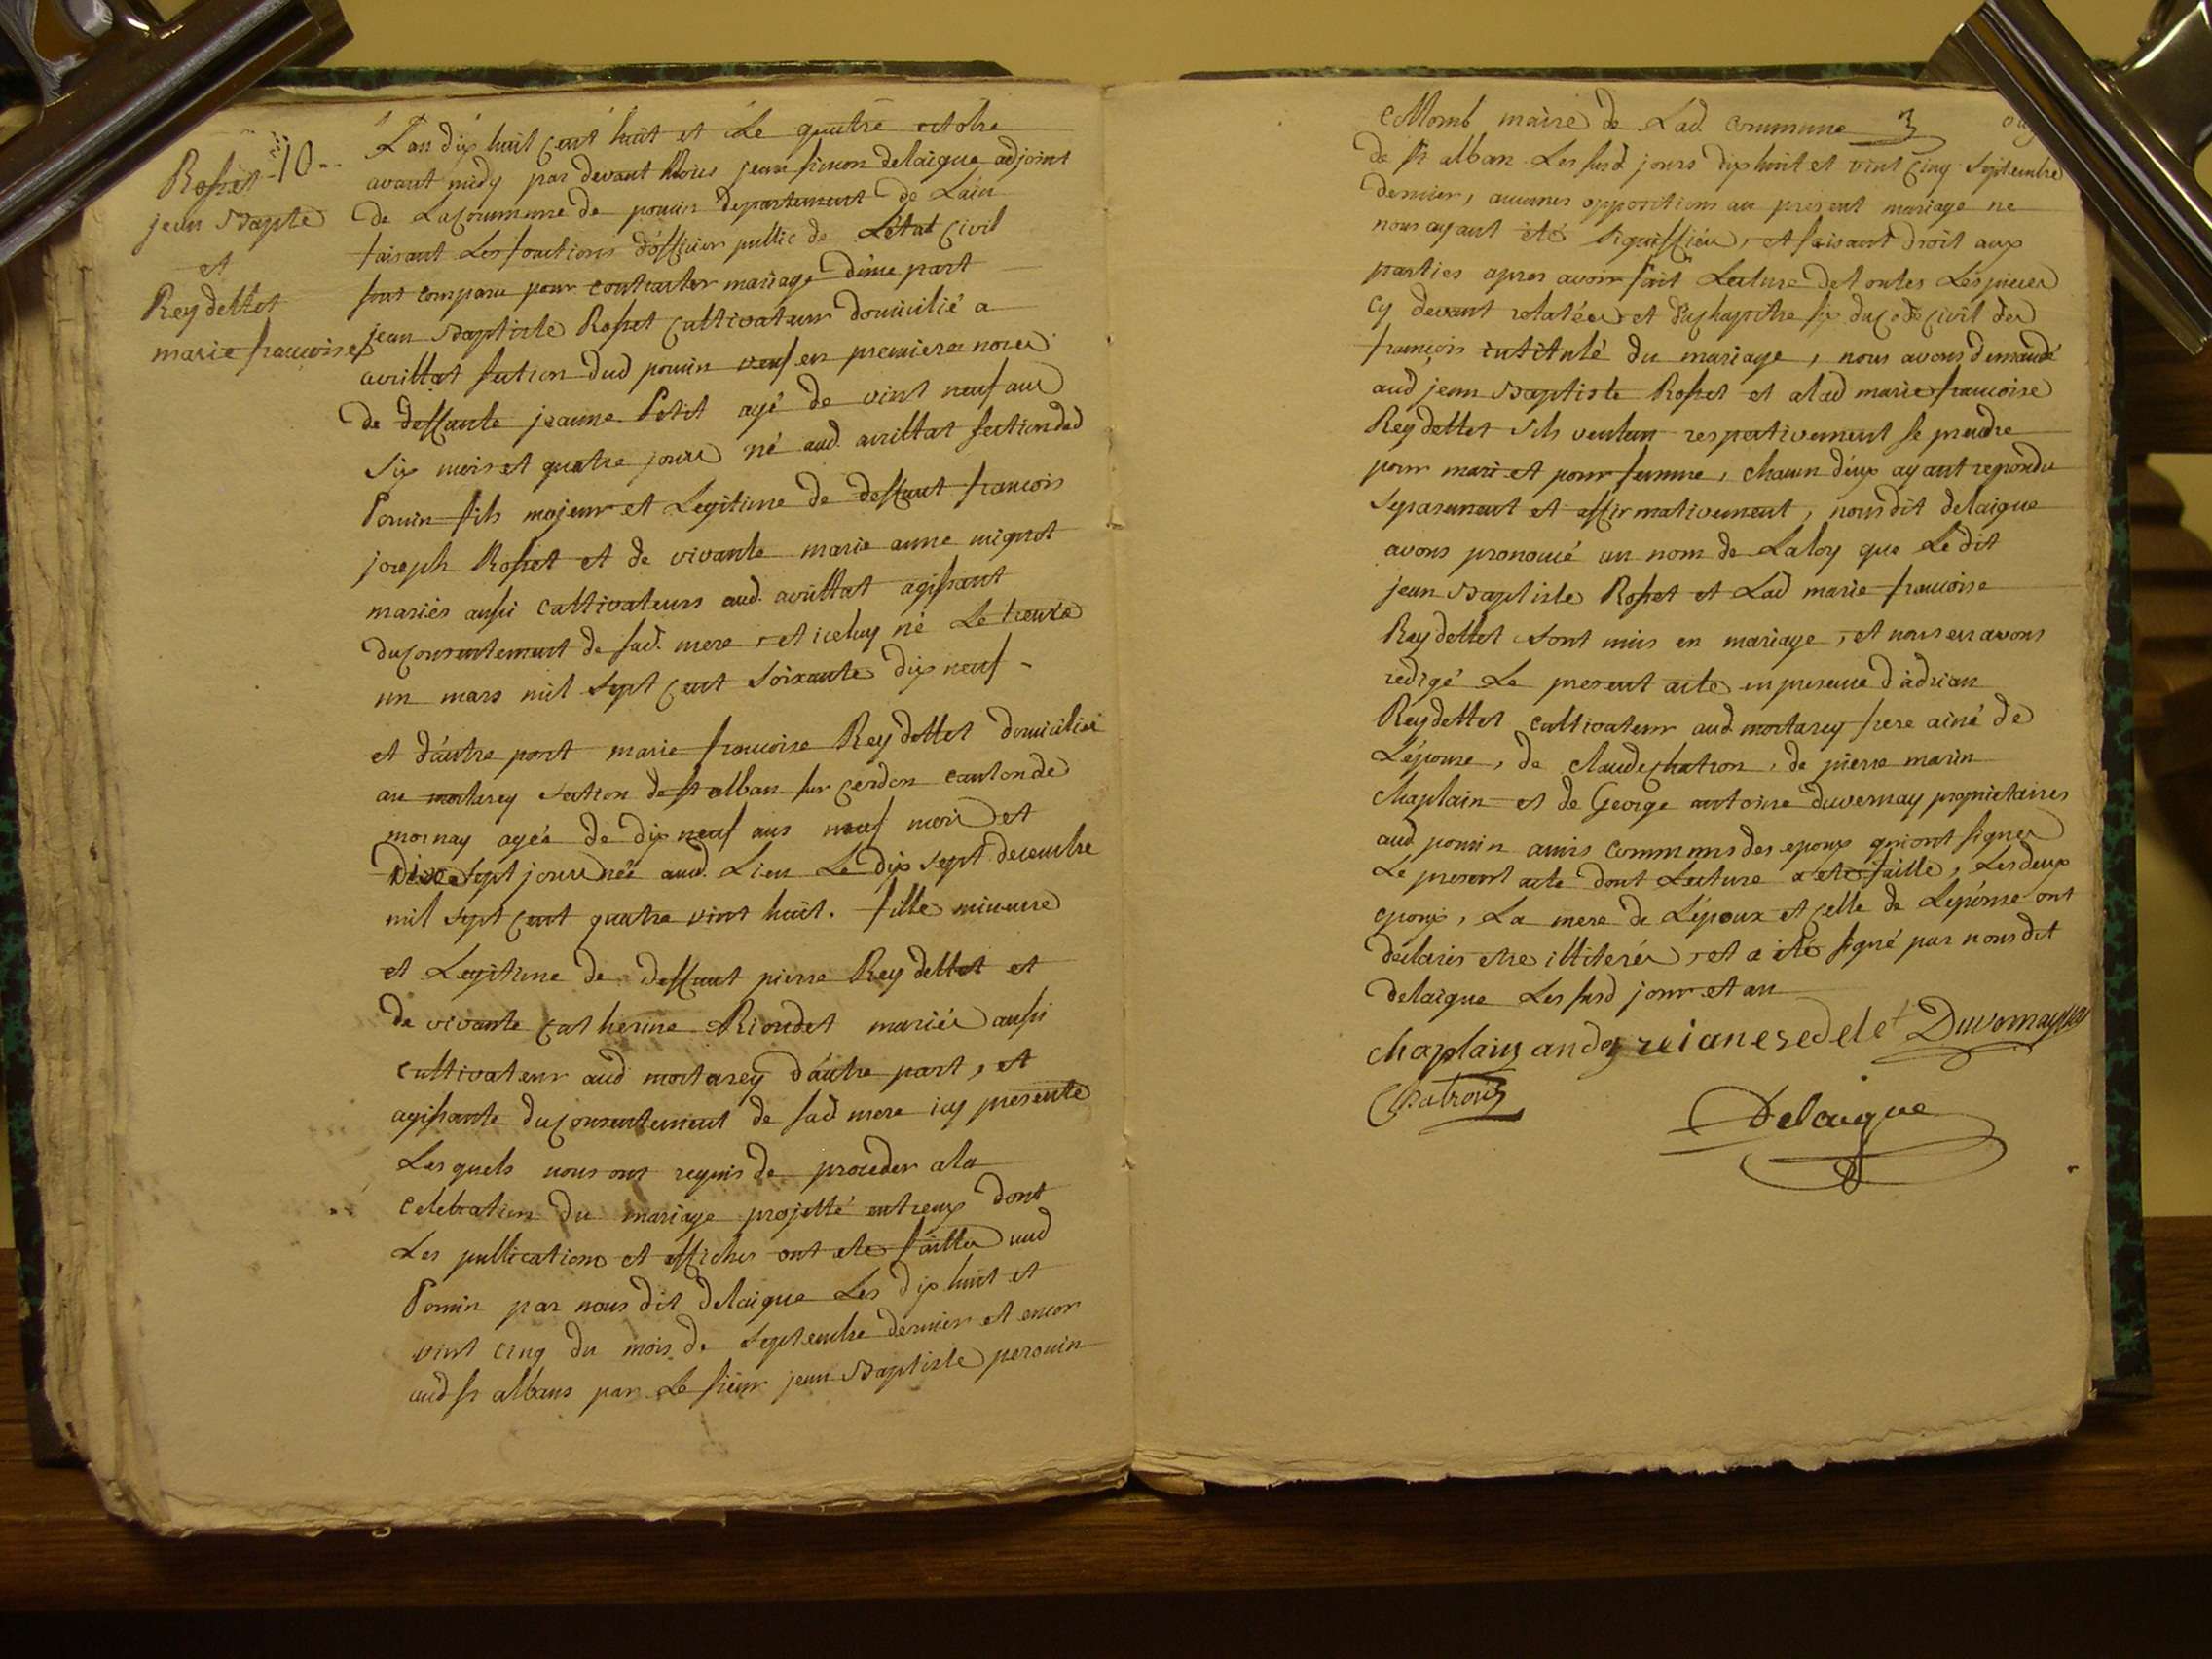 10
Rosset
jean Bapte
et
Reydellet
marie francoise
L'an dix huit cent huit et Le quatre octobre
avant midy par devant Nous jean simon delaigue adjoint
de La commune de poncin departement de L'ain
faisant Les fonctions d'officier public de L'état civil
sont comparu pour contracter mariage d'une part
jean Baptiste Rosset cultivateur domicilié a
avrillat section dud poncin veuf en premiere noces
de deffunte jeanne Petit agé de vint neuf ans
six mois et quatre jours né aud. avrillat section dud
Poncin fils majeur et Legitime de deffunt francois
joseph Rosset et de vivante marie anne mignot
mariés aussi cultivateurs aud. avrillat agissant
du consentement de sad. mere, et iceluy né Le trente
un mars mil sept cent soixante dix neuf -
et d'autre part marie francoise Reydellet domiciliée
au mortarey section de st alban sur cerdon canton de
mornay agée de dix neuf ans neuf mois et
dix sept jours née aud. Lieu Le dix sept decembre
mil sept cent quatre vint huit. fille mineure
et Legitime de deffunt pierre Reydellet et
de vivante catherine Riondet mariés aussi
cultivateur aud mortarey d'autre part, et
agissante du consentement de sad mere icy presente
Lesquels nous ont requis de proceder a la
celebration du mariage projetté entreux dont
Les publications et affiches ont eté faittes aud
Poncin par nous dit delaigue Les dix huit et
vint cinq du mois de septembre dernier et encor
aud st albans par Le sieur jean Baptiste perouin
Collomb maire de Lad. commune 
de st alban Les susd jours dix huit et vint cinq septembre
dernier, aucunes oppositions au present mariage ne
nous ayant eté signiffiées, et faisant droit aux
parties apres avoir fait Lecture de toutes Les pieces
cy devant relatées et du chapitre six du code civil des
françois intitulé du mariage, nous avons demandé
aud jean Baptiste Rosset et a lad marie francoise
Reydellet s'ils veulent respectivement se prendre
pour mari et pour femme, chacun d'eux ayant repondu
separement et affirmativement, nous dit delaigue
avons prononcé au nom de La loy que Le dit
jean Baptiste Rosset et Lad marie francoise
Reydellet sont unis en mariage, et nous en avons
redigé Le present acte en presence d'adrian
Reydellet cultivateur aud. mortarey frere ainé de
L'épouse, de claude chatron, de pierre marin
chaplain et de George antoine duvernay proprietaires
aud poncin amis communs des epoux qui ont signés
Le present acte dont Lecture a eté faitte, Les deux
epoux, La mere de L'époux et celle de L'epouse ont
declarés etre illiterés, et a été signé par nous dit
delaigue Les susd jour et an
chaplain Duvernay
Chatron
Delaigue